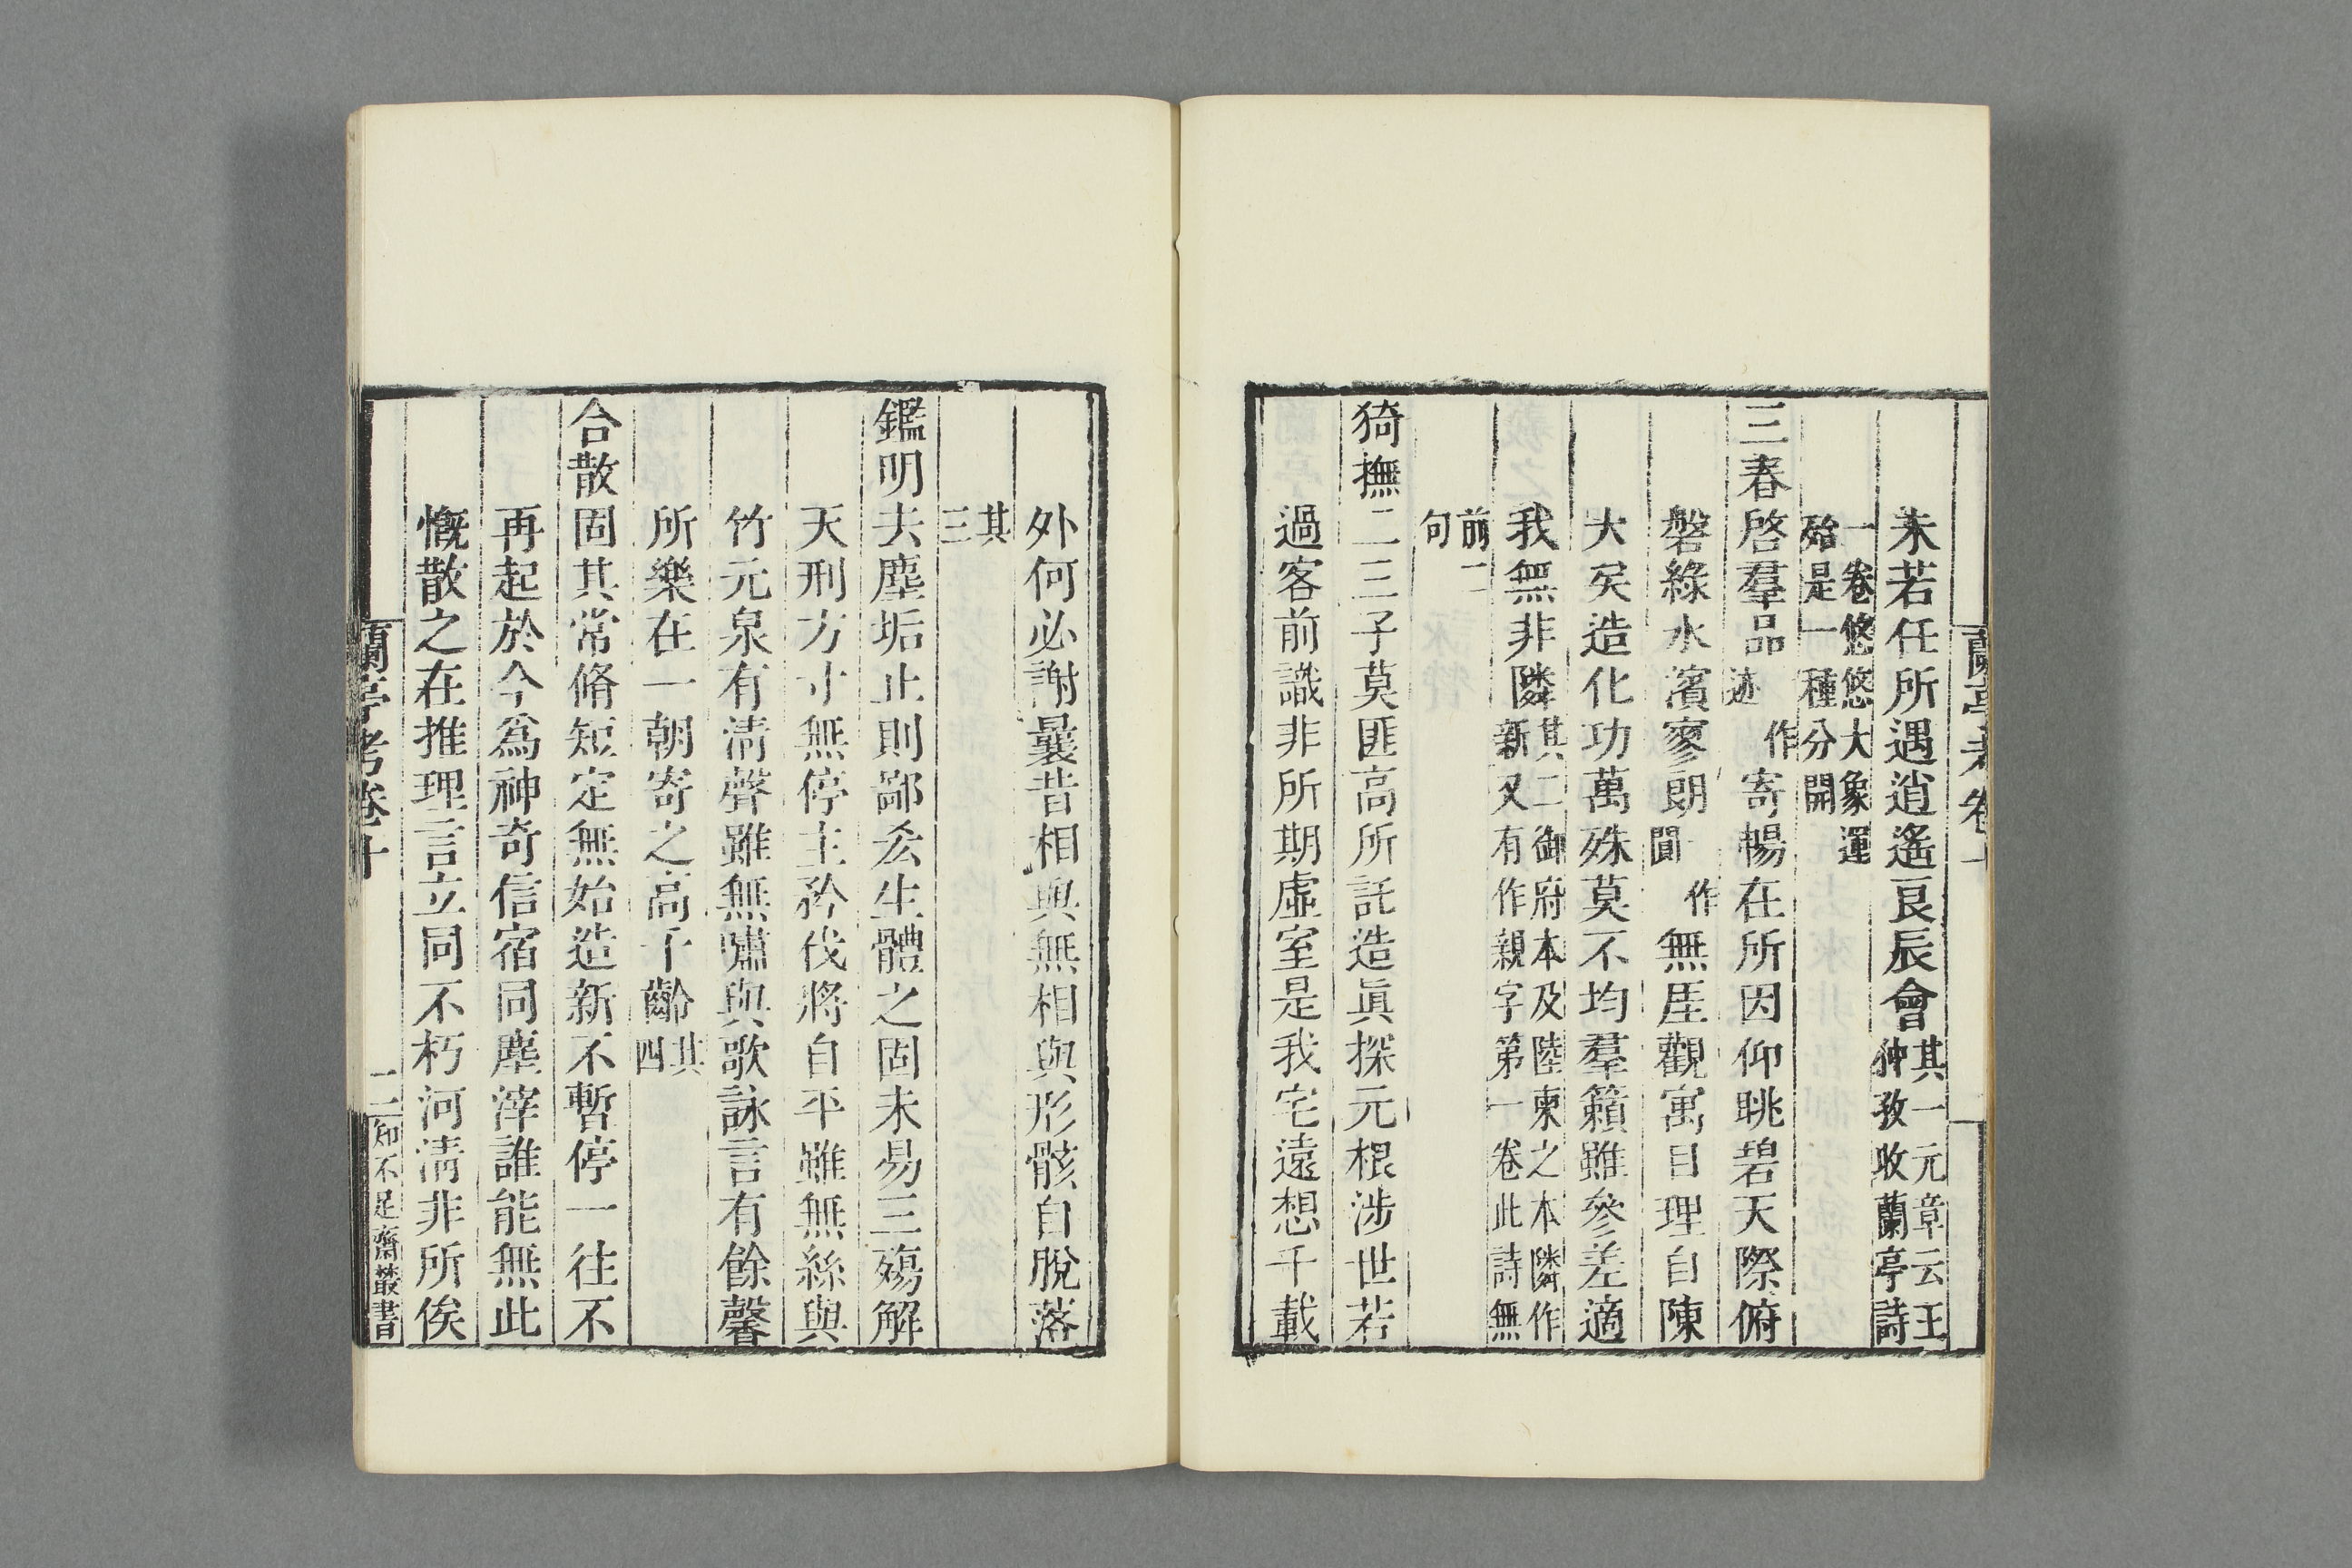 蘭亭考卷十
未若任所遇逍遙良辰會其一元章云王仲孜收蘭亭詩
一卷悠悠大象運殆是一種分開
三春啓羣品作迹寄暢在所因仰眺碧天際俯
磐綠水濱寥朗作閒無厓觀寓目理自陳
大矣造化功萬殊莫不均羣籟雖參差適
我無非隣其二御府本及陸柬之本隣作新又有作親字第一卷此詩無
前二句
猗撫二三子莫匪高所託造眞探元根涉世若
過客前識非所期虛室是我宅遠想千載
外何必謝曩昔相與無相與形骸自脫落
其三
鑑明去塵垢止則鄙𠫤生體之固未易三殤解
天刑方寸無停主矜伐將自平雖無絲與
竹元泉有清聲雖無嘯與歌詠言有餘馨
所樂在一朝寄之高千齡其四
合散固其常脩短定無始造新不暫停一往不
再起於今爲神奇信宿同塵滓誰能無此
慨散之在推理言立同不朽河清非所俟
蘭亭考卷十
二
知不足齋叢書